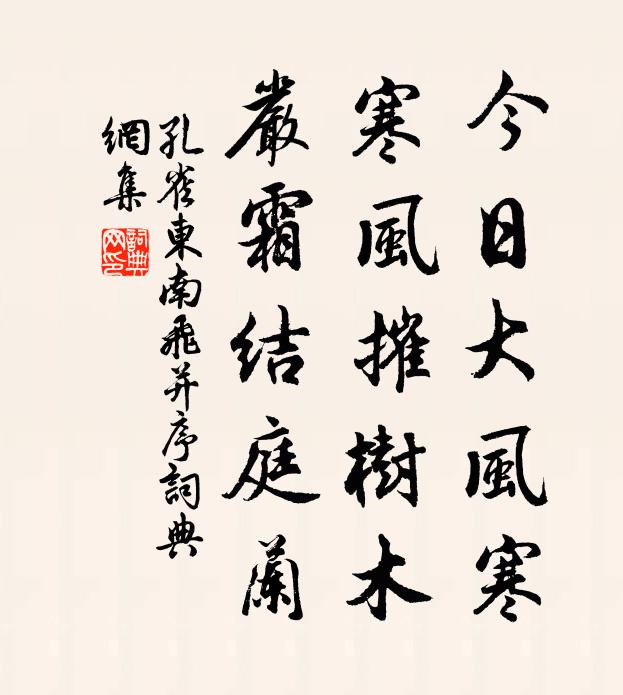 今日大風寒
寒風摧樹木
嚴霜結庭蘭
孔雀東南飛并序詞典
網集
詞典
网印